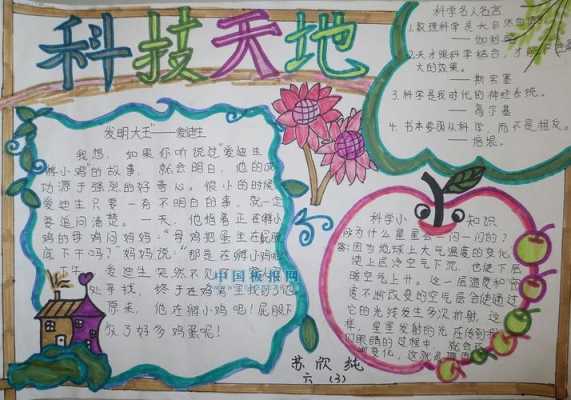 科技天地
科学名人名言
1.数理科学是大自然的语言。
——伽利略
2.天才跟科学结合,才能
大的效果。
——斯宾塞
3.科学是我时代的神经系统。
——高尔基
4.书本要围从科学,而不是相反。
——培根。
发明大王——爱迪生
我想,如果你听说过"爱迪生
孵小鸡"的故事,就会明白,他的成
功源于强烈的好奇心。很小的时候
爱迪生只要一有不明白的事,就一定
要追问清楚。一天,他指着正在孵小
鸡的母鸡问妈妈:"母鸡把蛋坐在屁股
底下干吗?"妈妈说:"那是在孵小鸡呢
爱迪生突然不见了
处寻找,终于在鸡窝里找到了他
原来,他在孵小鸡呢!屁股下
放了好多鸡蛋呢!
中国板报网
科学小知识
为什么星星会一闪一闪的?
答:因为地球上大气温度的变化,
使上层冷空气下沉,也使下层
暖空气上升。这一层温度和密
度不断改变的空气层会使通过
它的光线发生多次折射,这
样,星星发射的光在传到我
们眼睛的过程中,就会
变化,这就
苏欣纯
六(3)